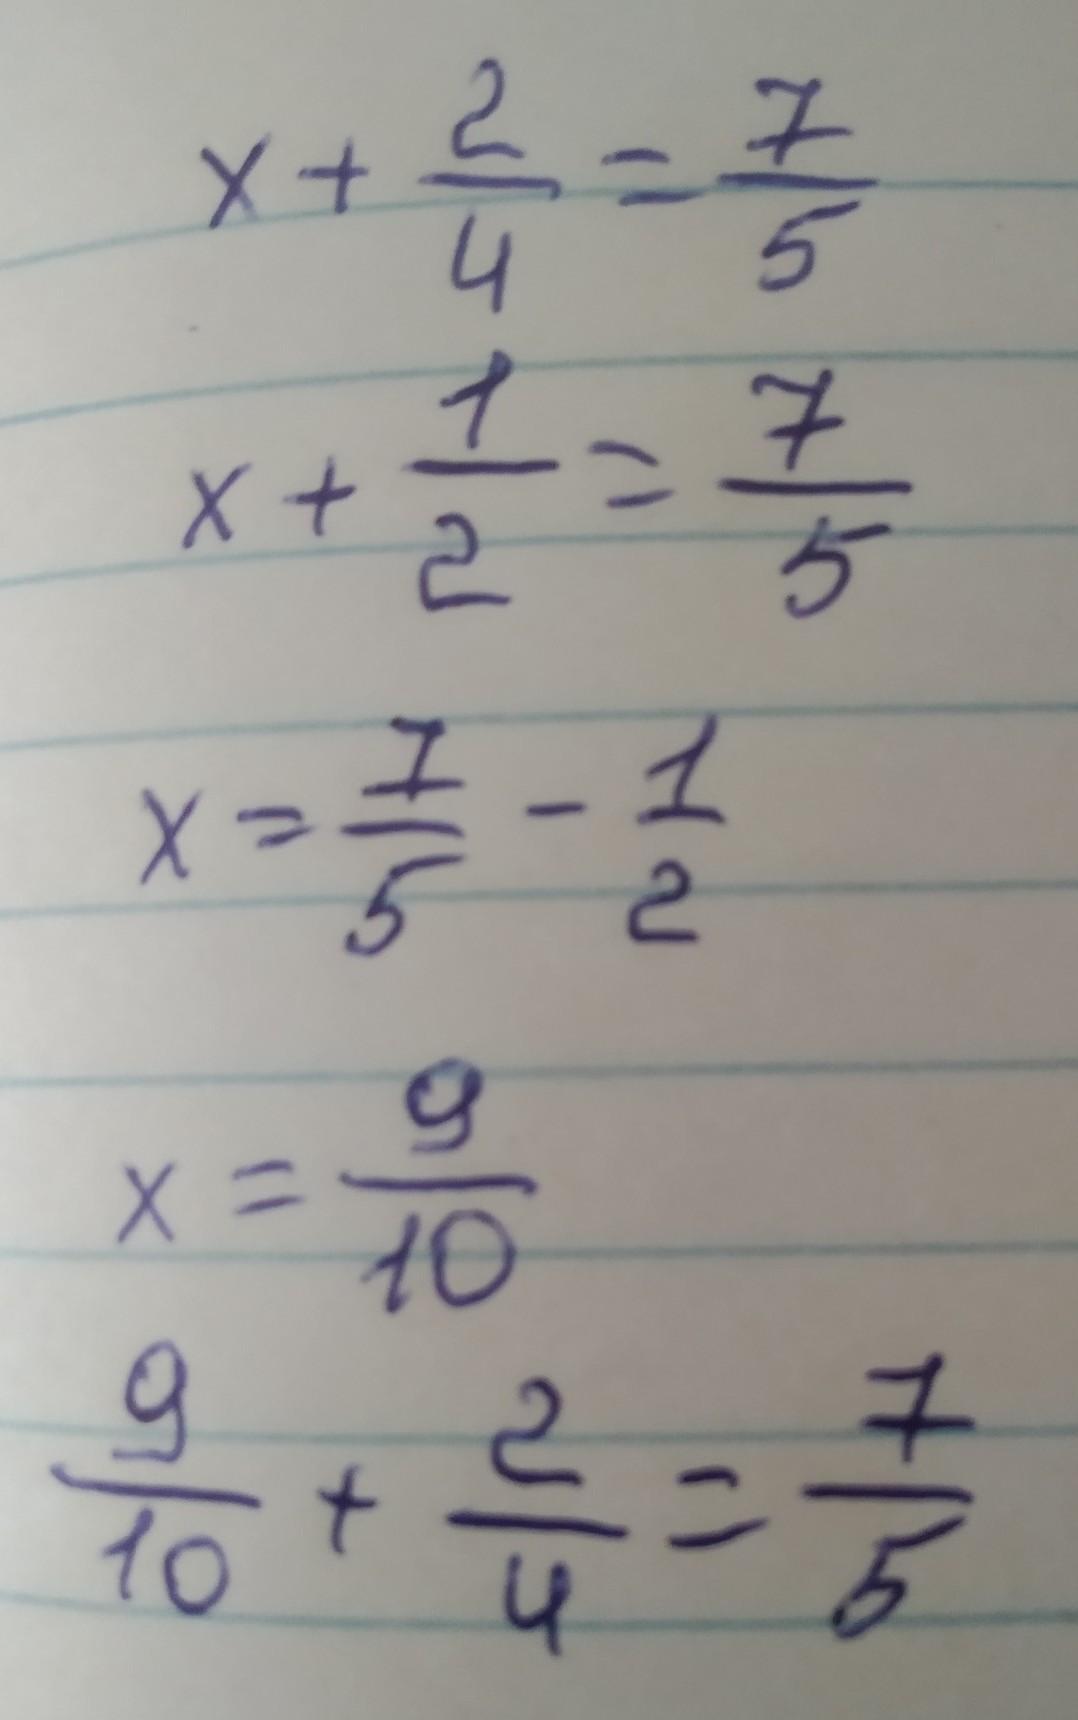 x + 2/4 = 7/5
x + 1/2 = 7/5
x = 7/5 - 1/2
x = 9/10
9/10 + 2/4 = 7/5